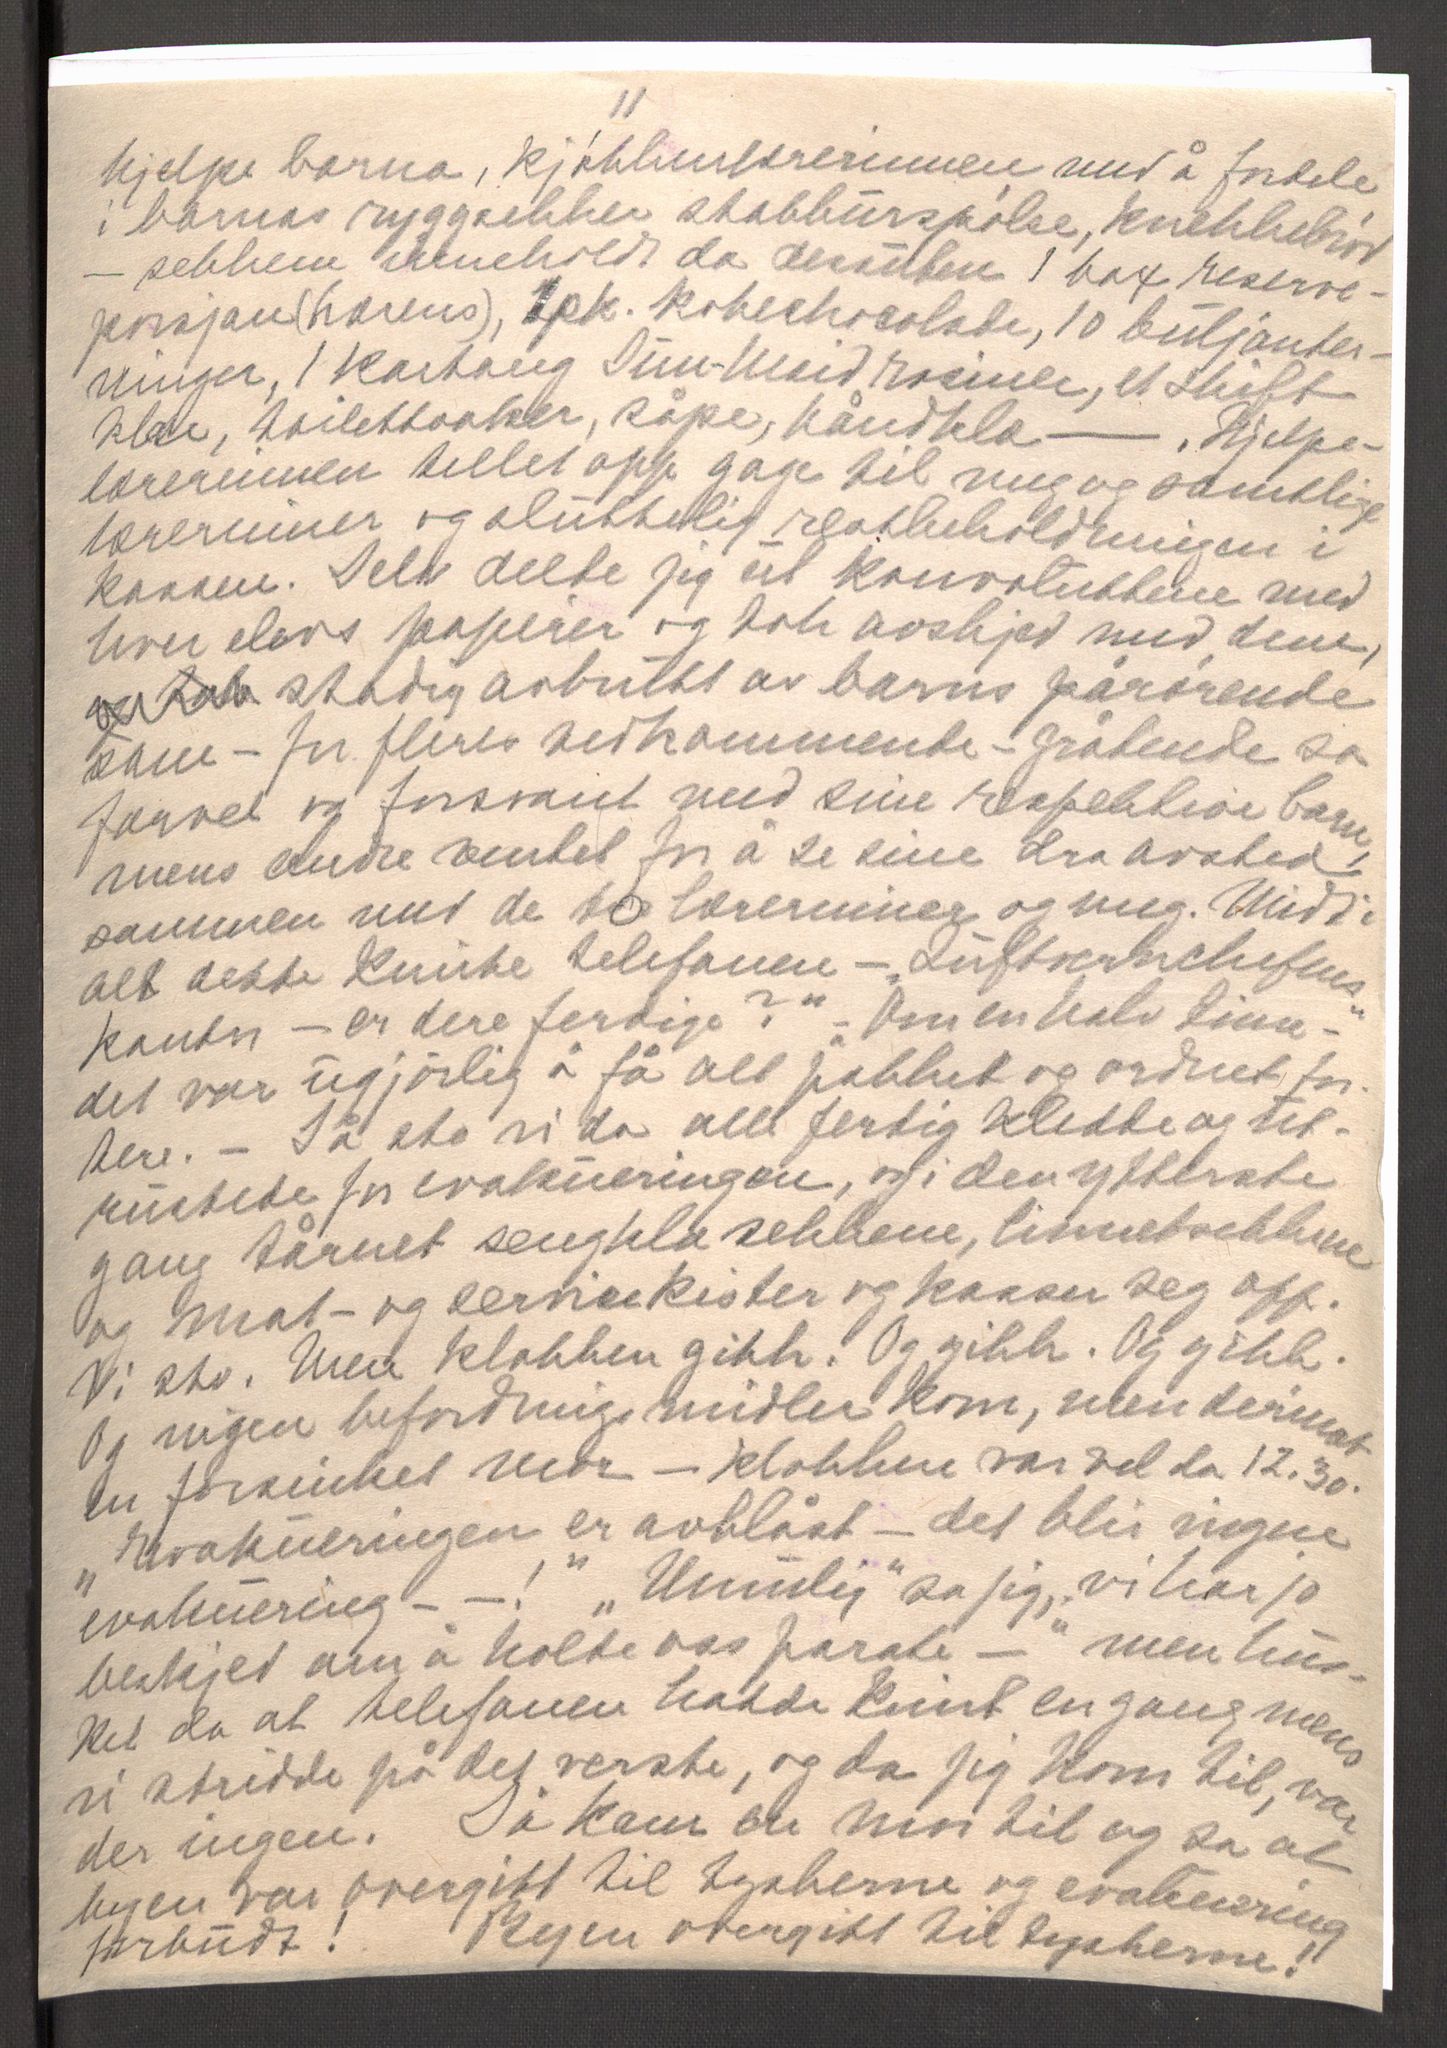 11
hjelpe barna, kjøkkenlærerinnen med å fordele
i barnas ryggsekker stabburspølse, knekkebrød
– sekkene inneholdt da desuten 1 box reserve-
porsjon (hærens), 1 pk. kokechocolade, 10 buljonter-
ninger, 1 kartong Sun-Maid rosiner, et skift
klær, toilettsaker, såpe, håndkla — . Hjelpe-
lærerinnen tellet opp gage til meg og samtlige
lærerinner og sluttelig restbeholdningen i
kassen. Selv delte jeg ut konvoluttene med
hver elevs papirer og tok avskjed med dem,
og tok stadig avbrutt av barns pårørende
som – for fleres vedkommende – gråtende sa
farvel og forsvant med sine respektive barn,
mens andre ventet for å se sine dra avsted
sammen med de to lærerinner og meg. Midt i
alt dette knirte telefonen – „Luftvernchefens
kontor – er dere ferdige?" „Om en halv time –"
det var ugjørlig å få alt pakket og ordnet for-
tere. – Så sto vi da alle ferdig kledte og ut-
rustete for evakueringen, og i den ytterste
gang tårnet sengklasekkene, linnetsekkene
og mat- og servicekister og kasser seg opp.
Vi sto. Men klokken gikk. Og gikk. Og gikk.
Og ingen befordringsmidler kom, men derimot
en forsinket mor – klokken var vel da 12.30.
„Evakueringen er avblåst – det blir ingen
evakuering – –!" „Umulig" sa jeg, „vi har jo
beskjed om å holde oss parate –" men hus-
ket da at telefonen hadde kimt en gang mens
vi stridde på det verste, og da jeg kom til, var
der ingen. Så kom en mor til og sa at
byen var overgitt til tyskerne og evakuering
forbudt! Byen overgitt til tyskerne!